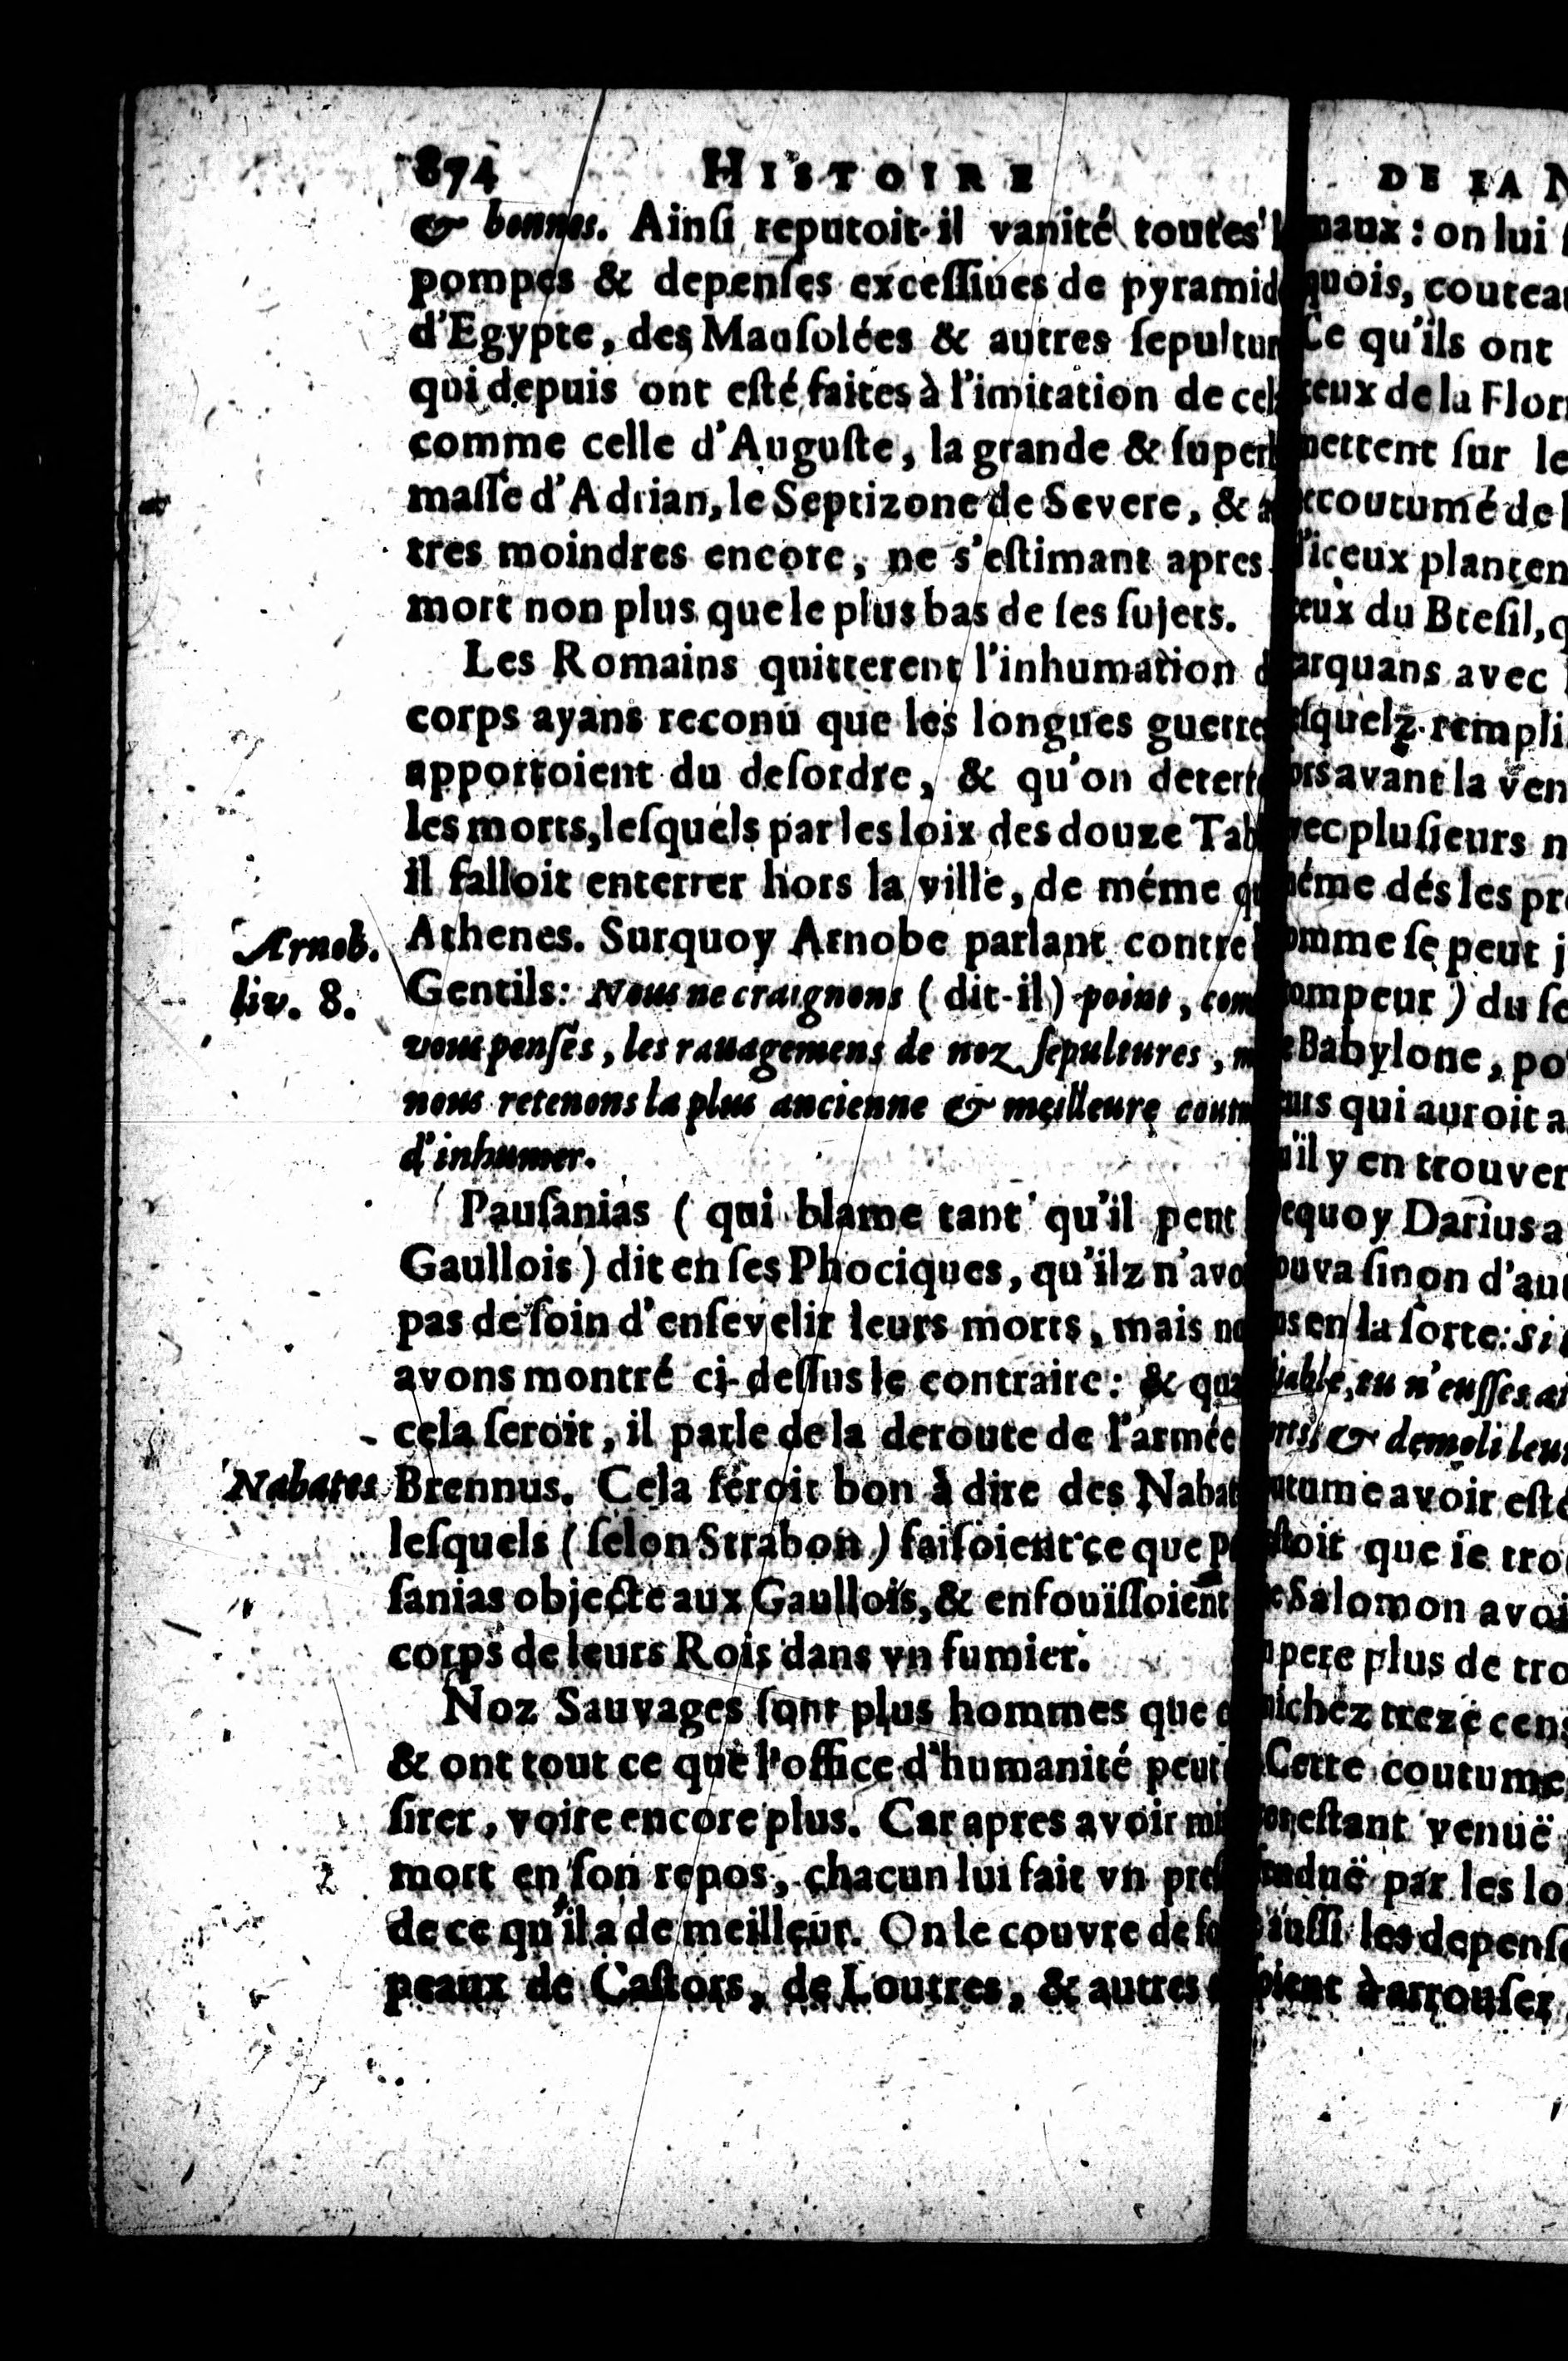 874 HISTOIRE
& bonnes. Ainſi reputoit-il vanité toutes
pompes & depenſes exceſſiues de pyramid
d'Egypte, des Mauſolées & autres ſepultur
qui depuis ont eſté faites à l'imitation de cel
comme celle d'Auguſte, la grande & ſuper
maſſe d'Adrian, le Septizone de Severe, & a
tres moindres encore, ne s'eſtimant apres
mort non plus que le plus bas de ſes ſujets.
Les Romains quitterent l'inhumation d
corps ayans reconu que les longues guerre
apportoient du deſordre, & qu'on deterr
les morts, leſquels par les loix des douze Tab
il falloit enterrer hors la ville, de méme q
Arnob.
liv. 8.
Athenes. Surquoy Arnobe parlant contre
Gentils: Nous ne craignons (dit-il) point, com
vous penſés, les rauagemens de noz ſepultures, m
nous retenons la plus ancienne & meilleure coutu
d'inhumer.
Pauſanias (qui blame tant qu'il peut
Gaullois) dit en ſes Phociques, qu'ilz n'avo
pas de ſoin d'enſevelir leurs morts, mais no
avons montré ci-deſſus le contraire: & qua
cela ſeroit, il parle de la deroute de l'armée
Nabates
Brennus. Cela ſeroit bon à dire des Nabat
leſquels (ſelon Strabon) faiſoient ce que P
ſanias objecte aux Gaullois, & enfouïſſoient
corps de leurs Rois dans vn fumier.
Noz Sauvages ſont plus hommes que c
& ont tout ce que l'office d'humanité peut
ſirer, voire encore plus. Car apres avoir mi
mort en ſon repos, chacun lui fait vn preſ
de ce qu'il a de meilleur. On le couvre de fo
peaux de Caſtors, de Loutres, & autres
DE LA N
maux: on lui
quois, coutea
Ce qu'ils ont
ceux de la Flor
mettent ſur le
ccoutumé de
d'iceux planten
ceux du Breſil, q
arquans avec
eſquelz rempli
ors avant la ven
vec pluſieurs n
méme dés les pr
omme ſe peut j
ompeur) du ſe
e Babylone, po
eurs qui auroit a
u'il y en trouver
dequoy Darius a
ouva ſinon d'au
ns en la ſorte: Si
iable, tu n'euſſes ai
orts, & demoli leu
utume avoir eſté
ſtoit que ie tro
e Salomon avoi
n pere plus de tro
nichez treze cen
Cette coutume
eſtant venuë
enduë par les lo
auſſi les depenſe
oient à arrouſer